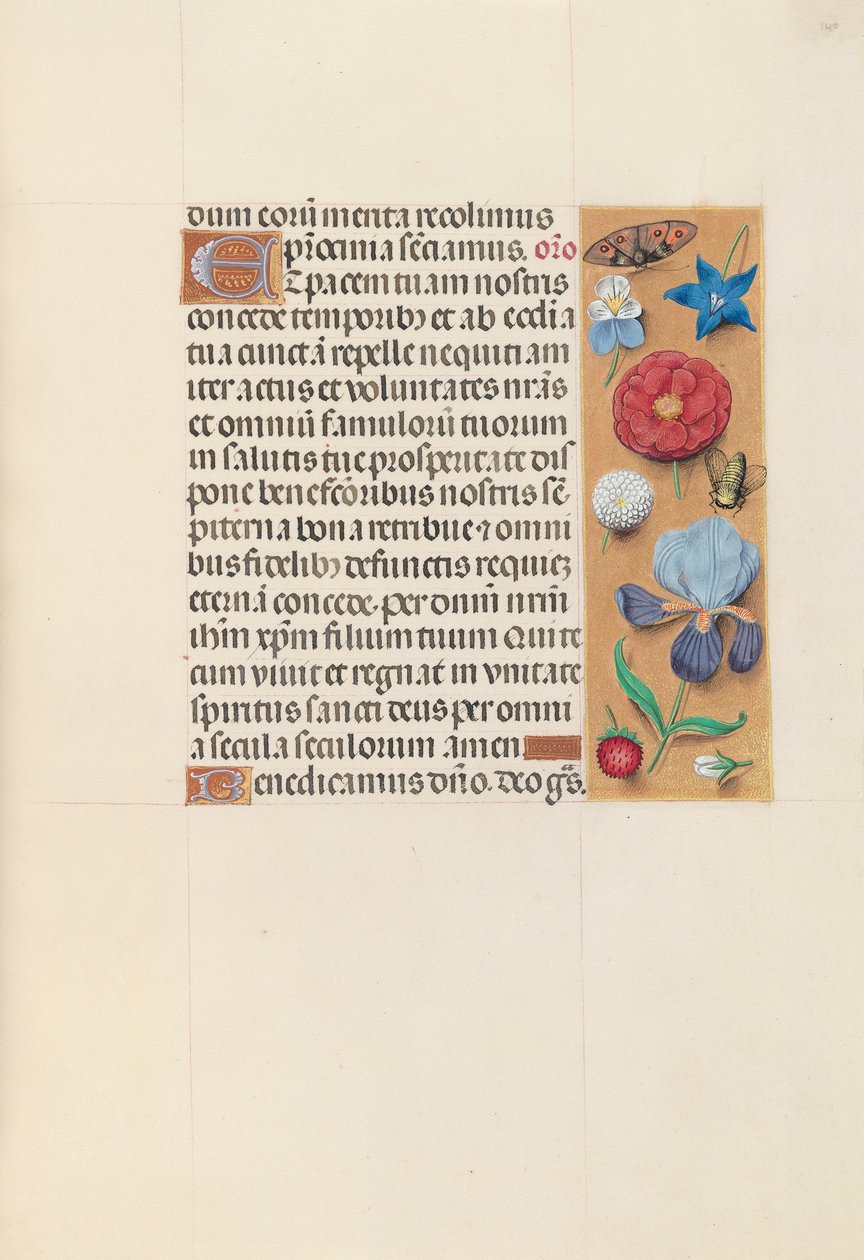 dum eorū merita recolimus
pr̄ocinia sēciamus. or̄o
Et pacem tuam nostris
concede temporibꝫ et ab ecclia
tua cunctā repelle nequitiam
iter actus et voluntates nrās
et omniū famulorū tuorum
in salutis tue prosperitate dis
pone benefc̄oribus nostris sē
piterna bona retribue ⁊ omni
bus fidelibꝫ defunctis requiez
eternā concede. per dnm̄ nrm̄
ihm̄ xpm̄ filium tuum Qui te
cum viuit et regnat in vnitate
spiritus sancti deus per omni
a secula seculorum Amen
Benedicamus dn̄o. deo grās.